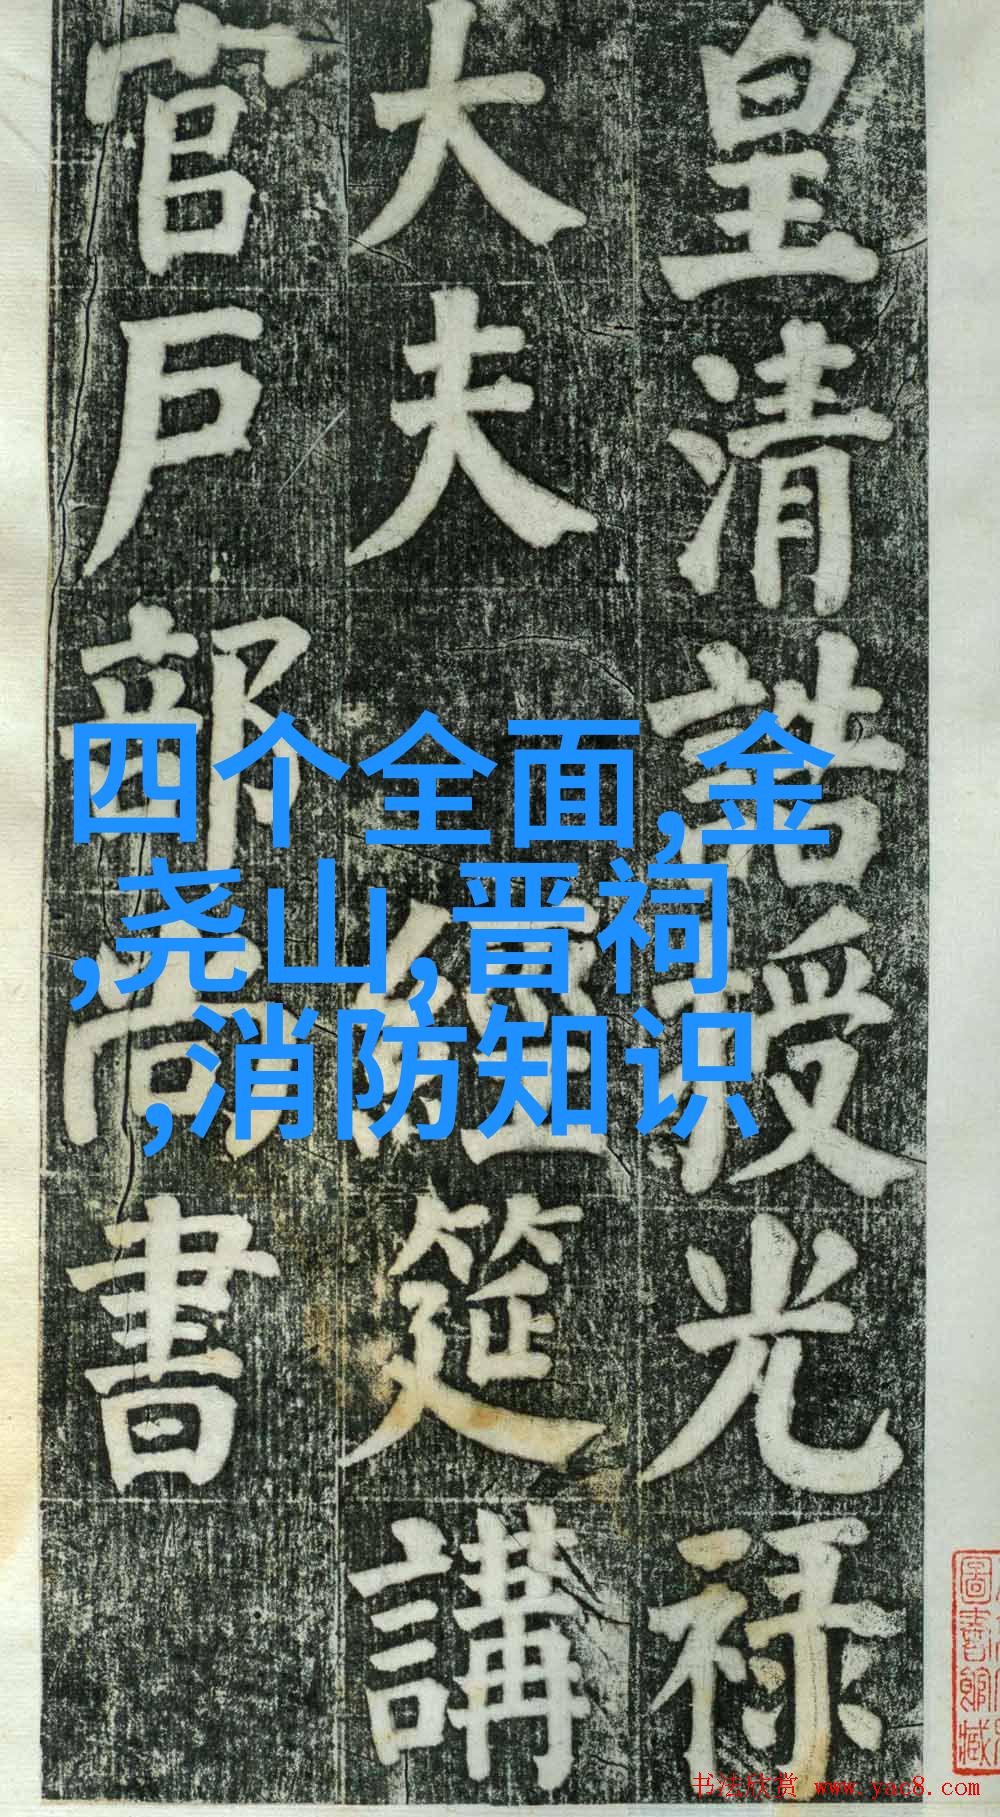 皇清誥授光禄
大夫 經筵講
官戶部尚書
四个全面,金
,尧山,晋祠
,消防知识
圖書館藏
书法欣赏 www.yac8.com